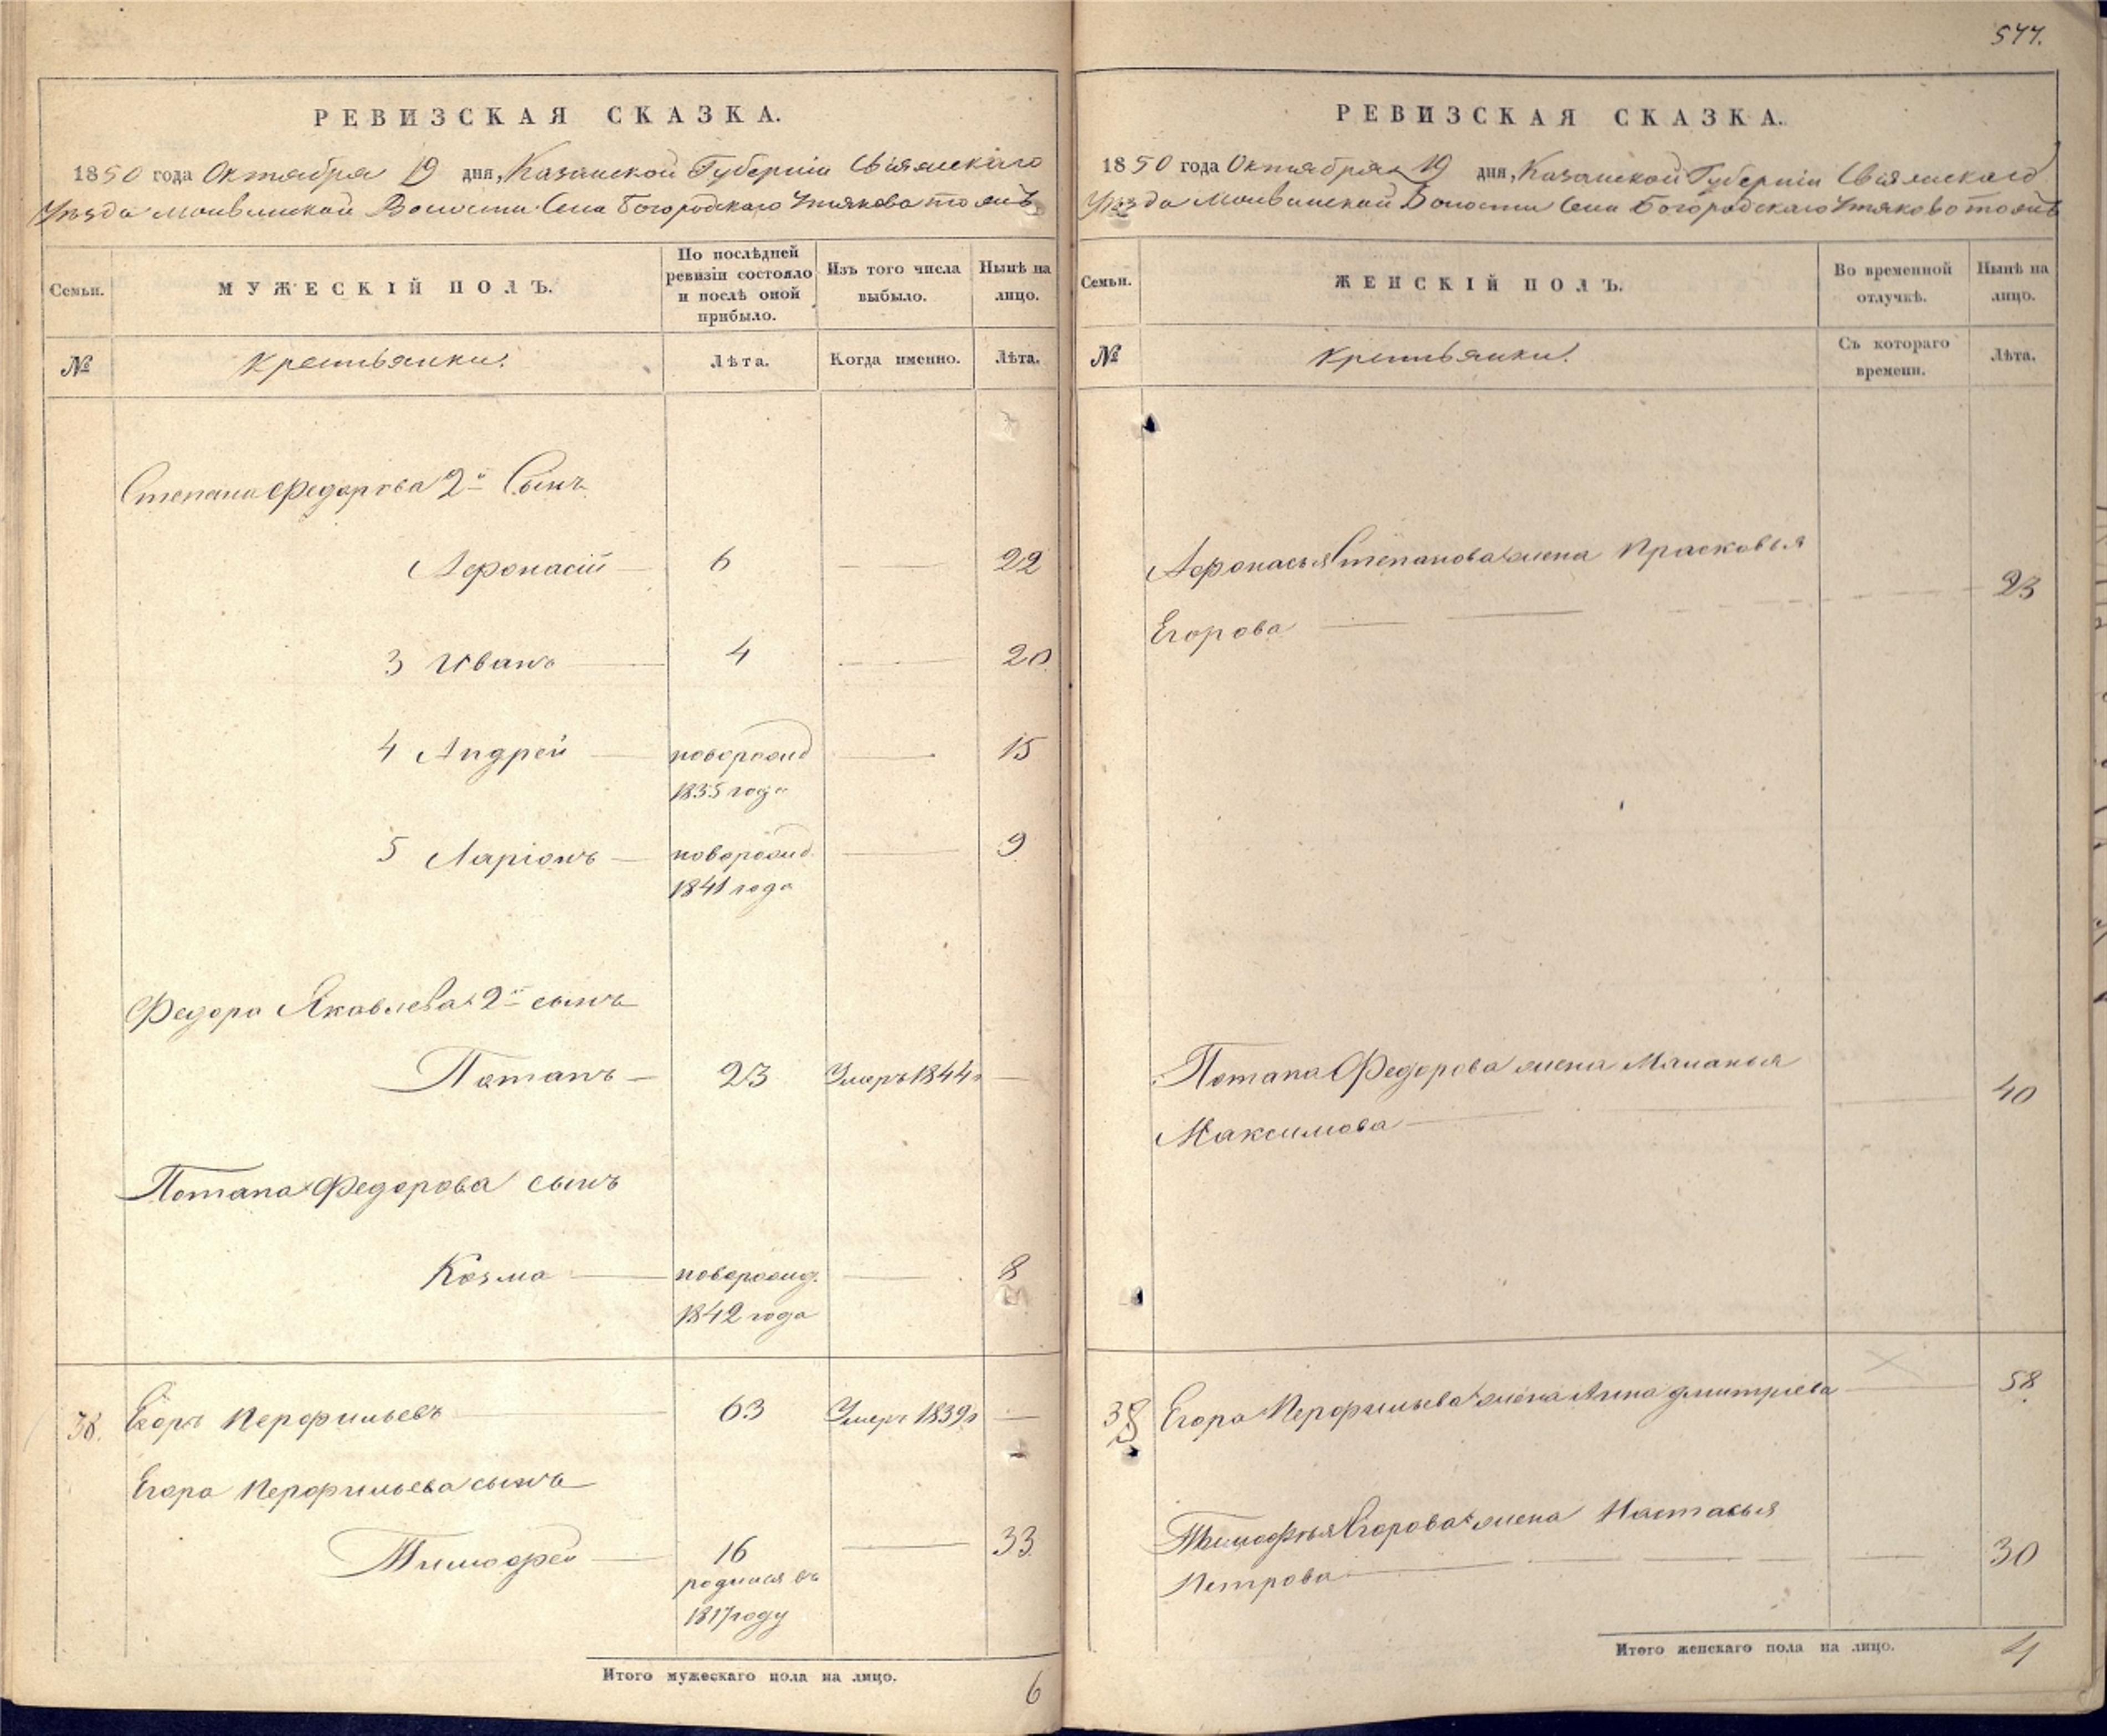 577.
РЕВИЗСКАЯ СКАЗКА.
1850 года Октября 19 дня, Казанской Губерніи Свіяжскаго
Уѣзда Волости Села Богородскаго Утяково тожъ
Семьи.
МУЖЕСКІЙ ПОЛЪ.
По послѣдней ревизіи состояло и послѣ оной прибыло.
Изъ того числа выбыло.
Нынѣ на лицо.
№
Крестьянки.
Лѣта.
Когда именно.
Лѣта.
Степана Федорова 2й Сынъ
Афонасій 6 22
3 Иванъ 4 20
4 Андрей новорожд 15
1835 года
5 Ларіонъ новорожд. 9
1841 года
Федора Яковлева 2й сынъ
Потапъ 23 Умеръ 1844г
Потапа Федорова сынъ
Козма новорожд. 8
1842 года
38. Егоръ Перфильевъ 63 Умеръ 1839г
Егора Перфильева сынъ
Тимофей 16 33
родился въ
1817 году
Итого мужескаго пола на лицо. 6
РЕВИЗСКАЯ СКАЗКА.
1850 года Октября 19 дня, Казанской Губерніи Свіяжскаго
Уѣзда Волости Села Богородскаго Утяково тожъ
Семьи.
ЖЕНСКІЙ ПОЛЪ.
Во временной отлучкѣ.
Нынѣ на лицо.
№
Крестьянки.
Съ котораго времени.
Лѣта.
Афонасья Степанова жена Прасковья
Егорова 23
Потапа Федорова жена Маланья
Максимова 40
38 Егора Перфильева жена Анна Дмитріева 58.
Тимофѣя Егорова жена Настасья
Петрова 30
Итого женскаго пола на лицо. 4